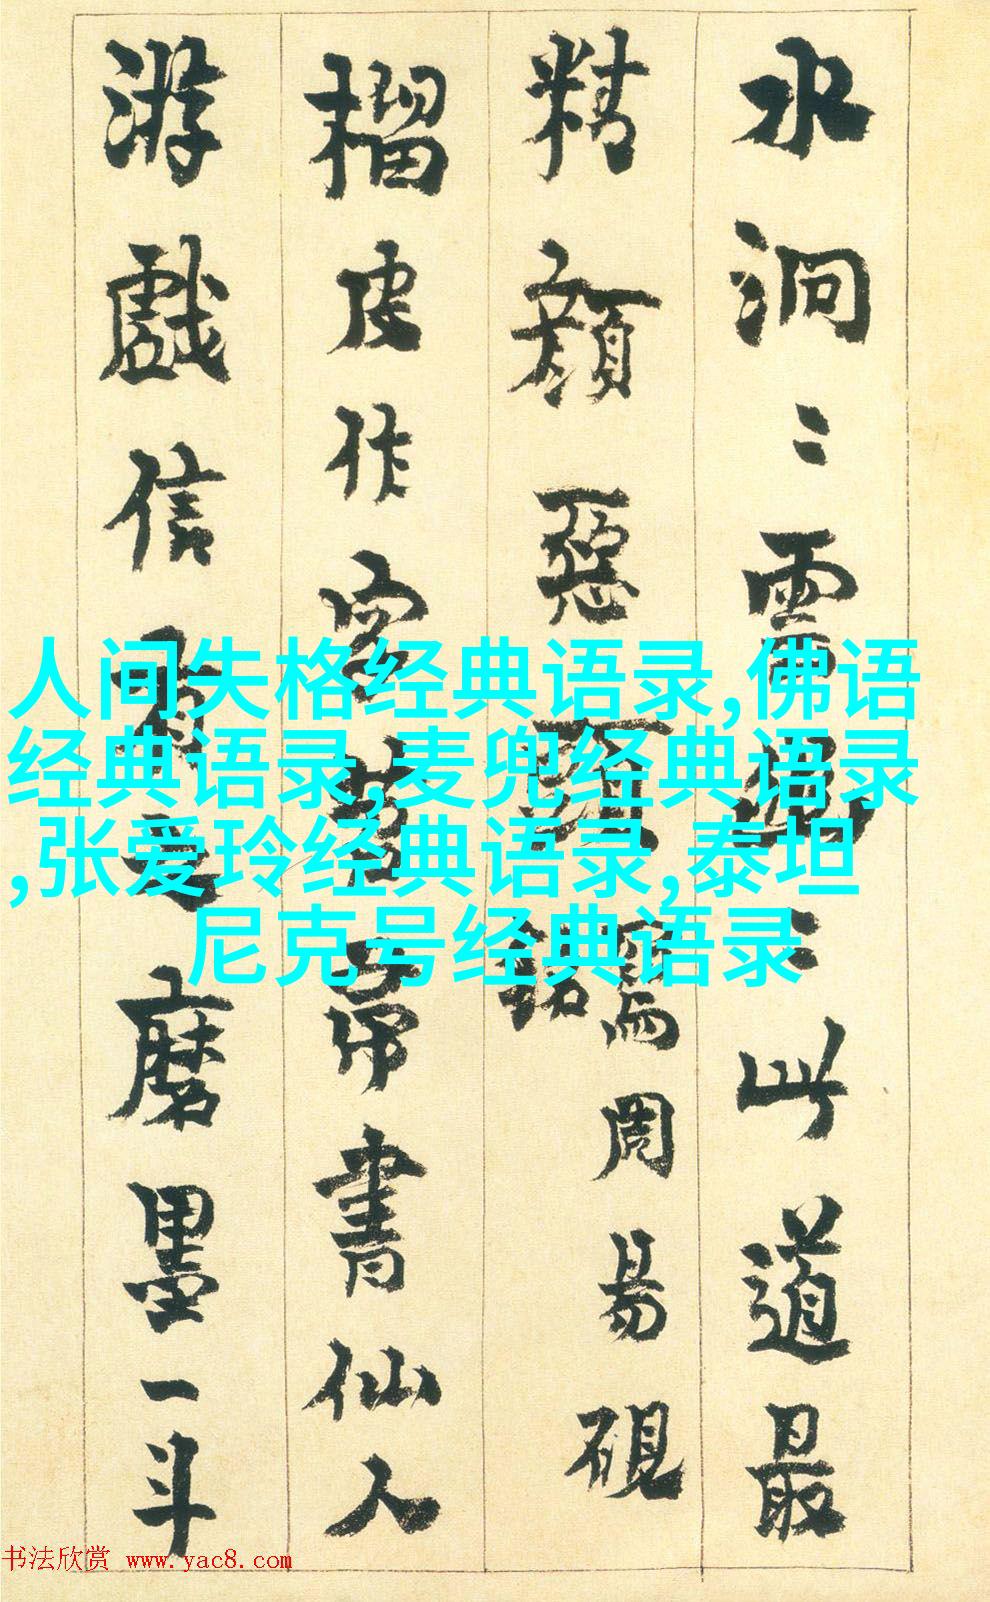 水洞〻雷鳴〻此道最
精顏惡頭
濡周易硯
榴皮作字
帚書仙人
游戲信
磨墨一斗
人间失格经典语录,佛语
经典语录,麦兜经典语录
,张爱玲经典语录,泰坦
尼克号经典语录
书法欣赏 www.yac8.com